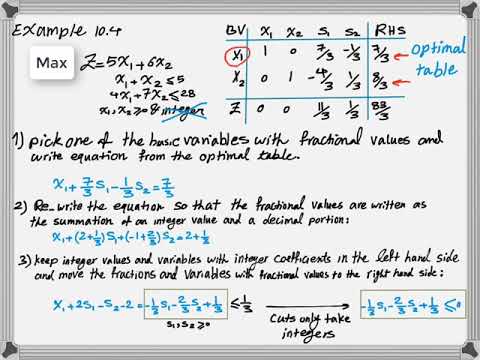 Example 10.4
Max Z=5x₁+6x₂
x₁+x₂≤5
4x₁+7x₂≤28
x₁,x₂≥0 & integer
BV x₁ x₂ s₁ s₂ RHS
x₁ 1 0 7/3 -1/3 7/3
x₂ 0 1 -4/3 1/3 8/3
Z 0 0 11/3 1/3 83/3
optimal
table
1) pick one of the basic variables with fractional values and
write equation from the optimal table.
x₁+7/3 s₁-1/3 s₂=7/3
2) Re-write the equation so that the fractional values are written as
the summation of an integer value and a decimal portion:
x₁+(2+1/3)s₁+(-1+2/3)s₂=2+1/3
3) keep integer values and variables with integer coefficients in the left hand side
and move the fractions and variables with fractional values to the right hand side:
x₁+2s₁-s₂-2=-1/3 s₁-2/3 s₂+1/3 ≤1/3
s₁,s₂≥0
Cuts only take
integers
-1/3 s₁-2/3 s₂+1/3 ≤0